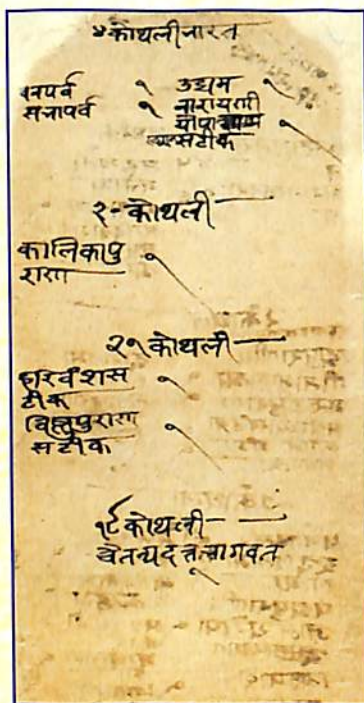 कोथलीभारत
वनपर्व १ उद्यम १
सभापर्व १ नारायणी
सटीक
२-कोथली
कालिकापु १
राण
२१ कोथली
हरिवंशस १
टीक
विष्णुपुराण १
सटीक
१८ कोथली
चैतन्यदत्तभागवत